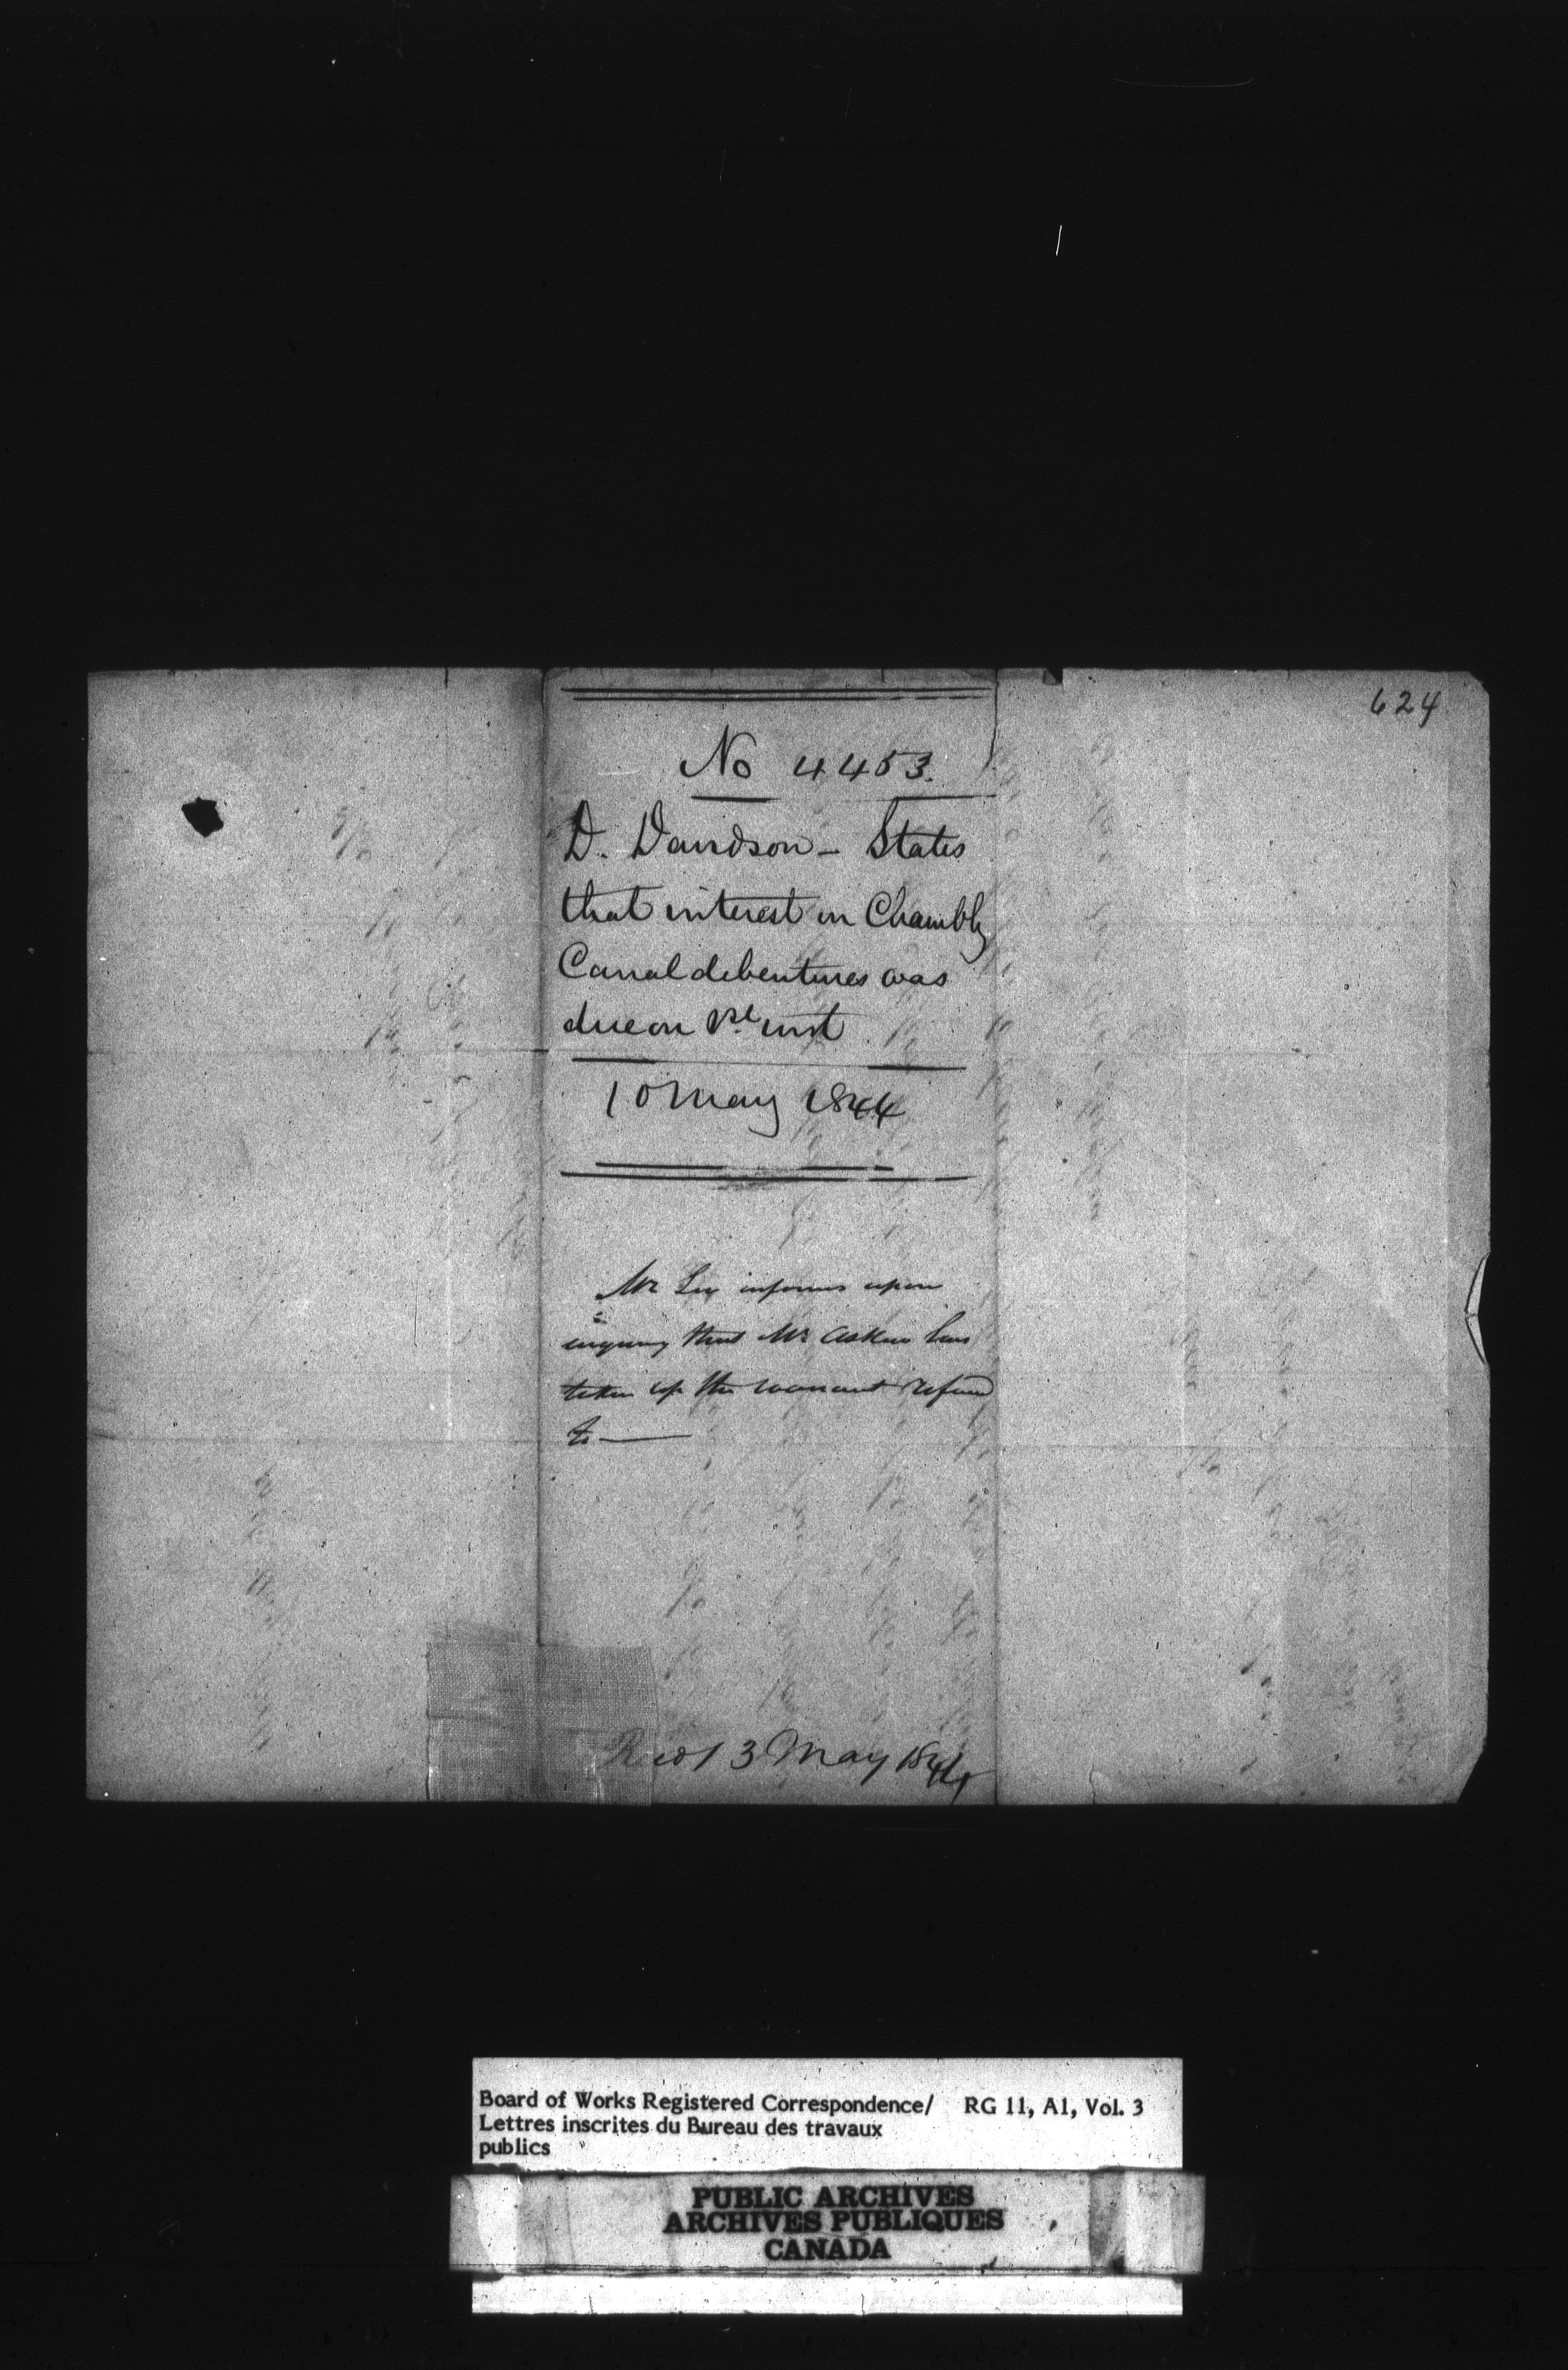 624
No 4453.
D. Davidson - States
that interest on Chambly
Canal debentures was
due on 1st inst
10 May 1844
Mr informs upon
inquiry that Mr Askin has
taken up the warrant referred
to —
Recd 13 May 1844
Board of Works Registered Correspondence/ RG 11, A1, Vol. 3
Lettres inscrites du Bureau des travaux
publics
PUBLIC ARCHIVES
ARCHIVES PUBLIQUES
CANADA